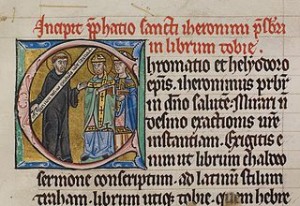 Incipit p̄phatio sancti iheronimi p̄sb̄ri
in librum tobie.
Chromatio et helyodoro
ep̄is. iheronimus p̄rb̄r
in dn̄o salutē. Mirari n̄
desino exactionis ur̄e
instantiam. Exigitis e
nim ut librum chaldeo
sermone conscriptum. ad latinū stilum
traham. librum utiq; tobie. quem hebre